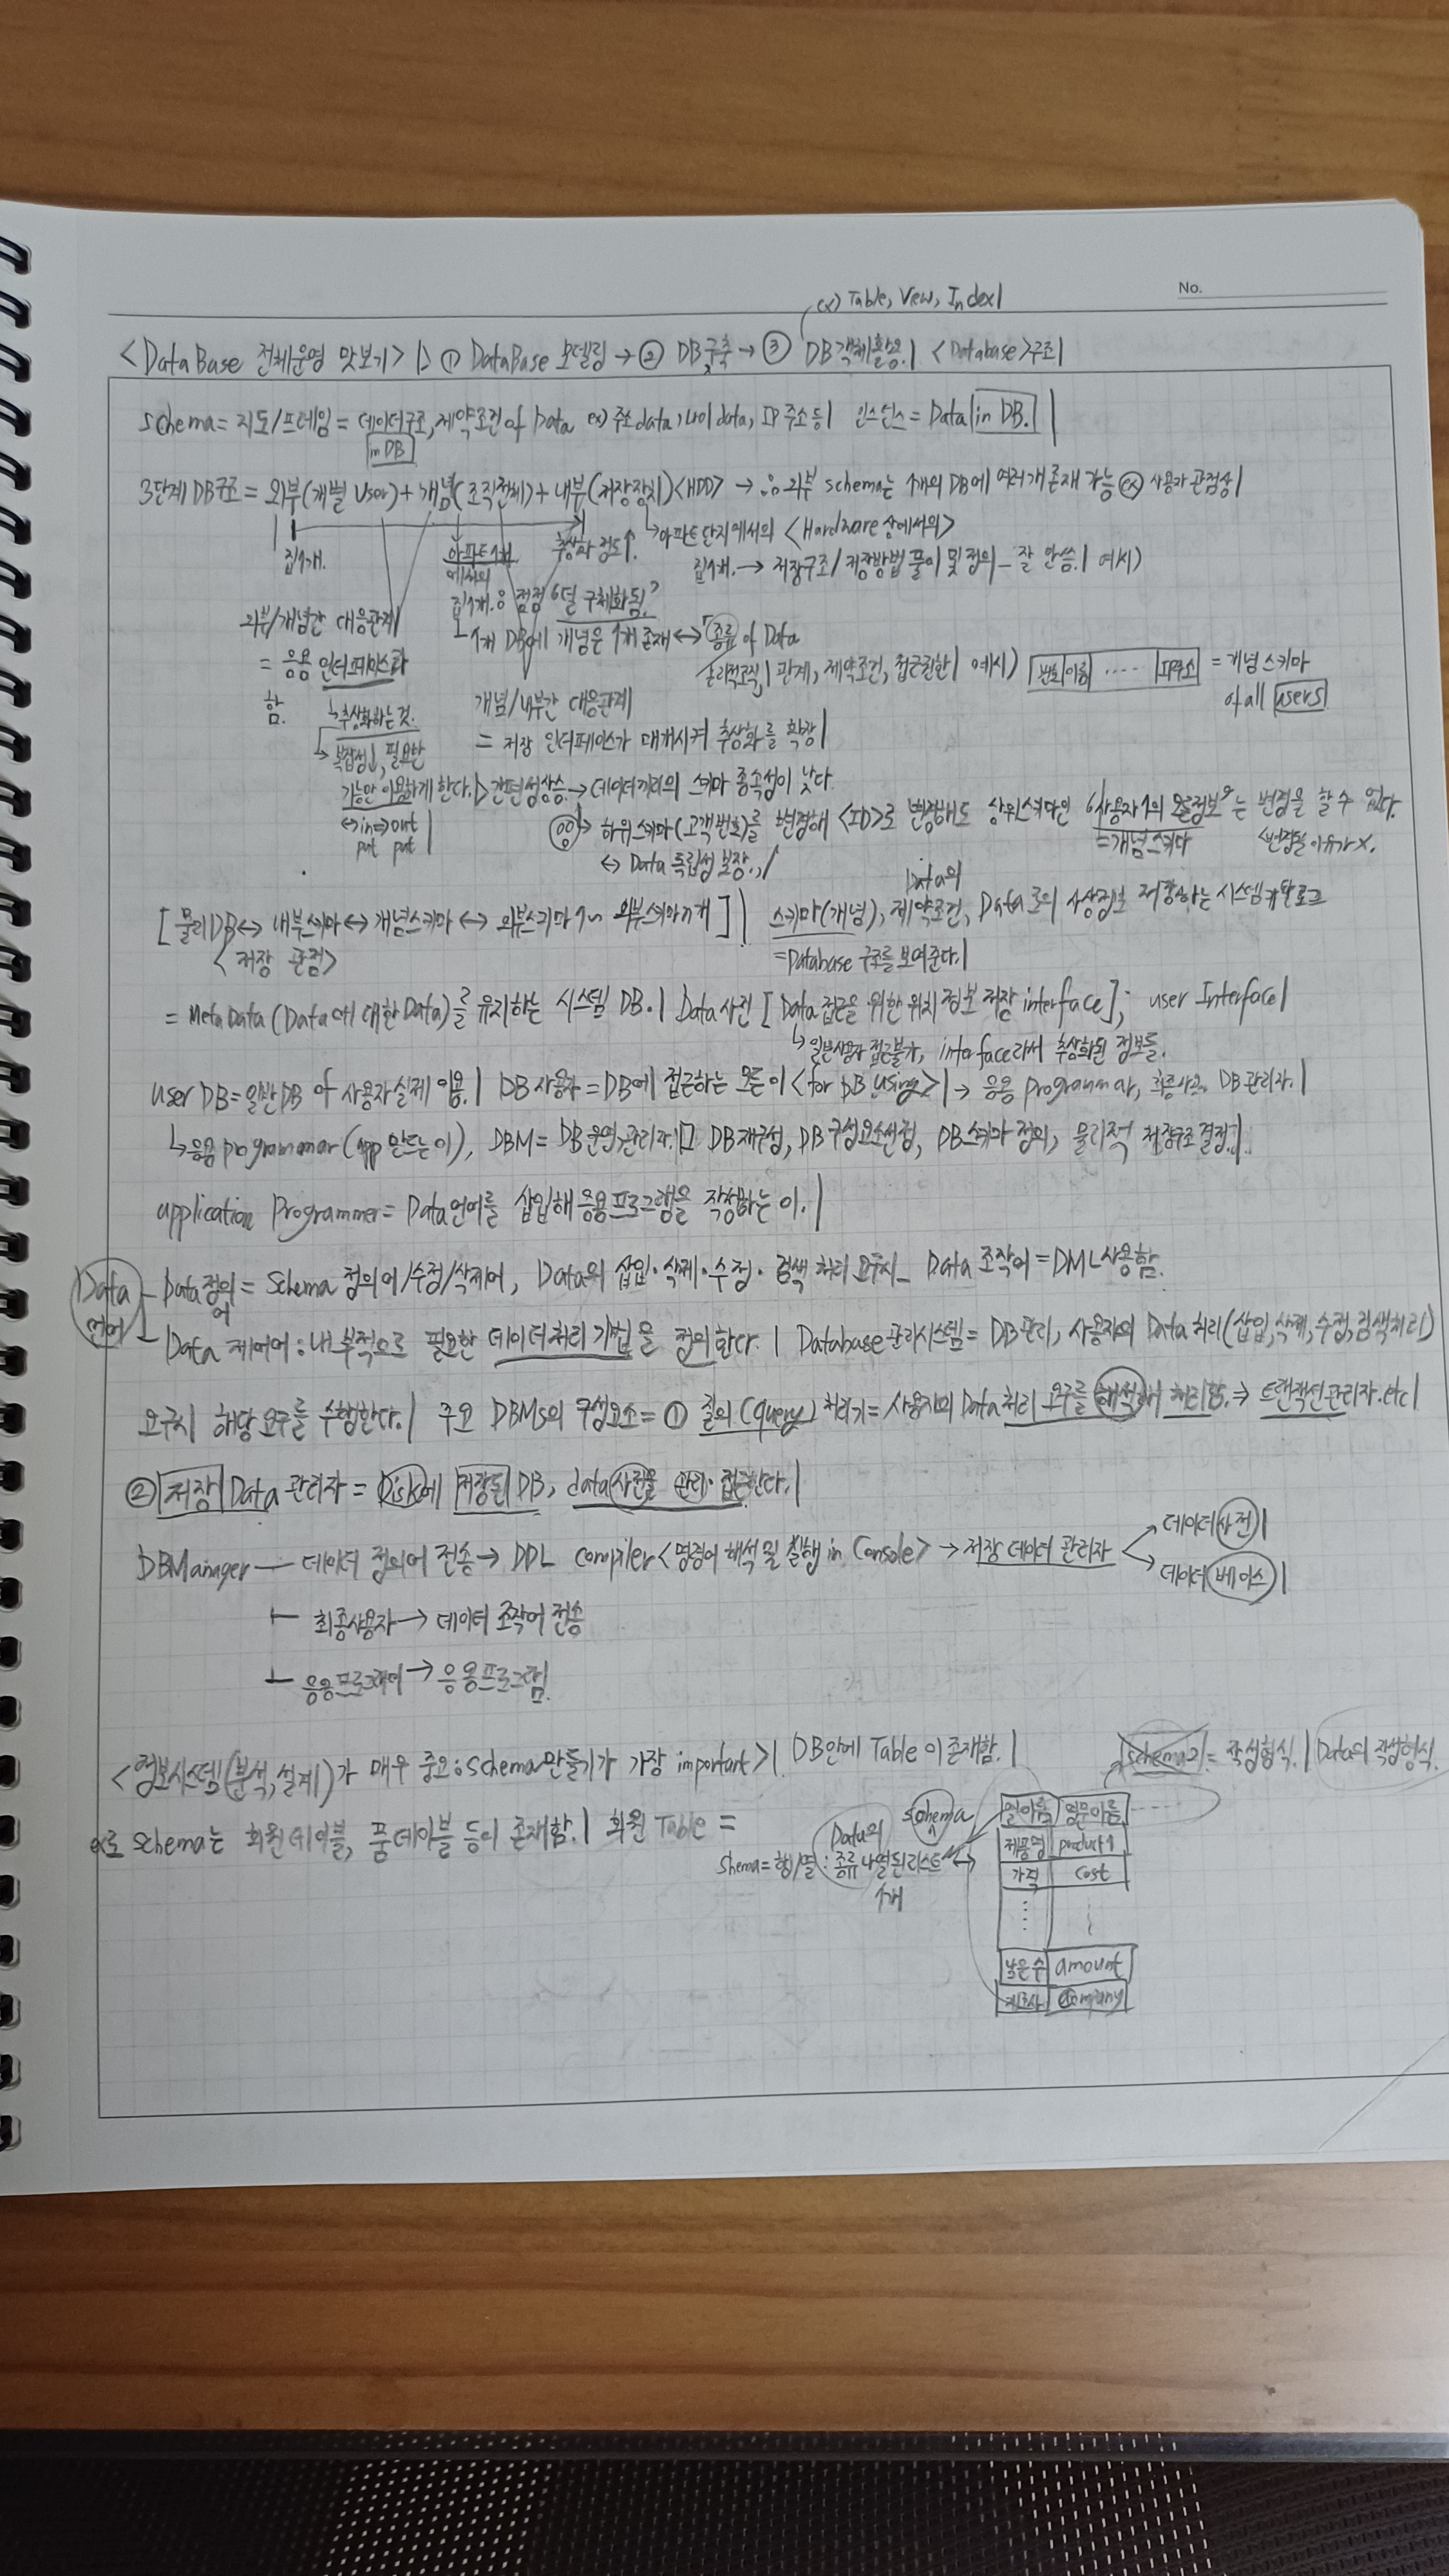 No.
ex) Table, View, Index|
<DataBase 전체운영 맛보기> |> ① DataBase 모델링 → ② DB구축 → ③ DB객체활용.| <Database>구조|
schema = 지도/프레임 = 데이터구조, 제약조건 of Data ex) 주소data, 나이data, IP주소등| 인스턴스 = Data in DB.|
in DB
3단계 DB구조 = 외부(개별 User) + 개념(조직전체) + 내부(저장장치)<HDD> → 외부 schema는 1개의 DB에 여러개 존재 가능 ex 사용자 관점상|
집1개. 아파트1개 추상화 정도↑. 아파트단지에서의 <Hardware 상에서의>
에서의 집1개. → 저장구조/저장방법 풀이 및 정의 _ 잘 안씀.| 예시)
집1개. 점점 "덜 구체화됨."
외부/개념간 대응관계| 1개 DB에 개념은 1개 존재 ↔ 「종류 of Data
= 응용 인터페이스라 관계, 제약조건, 접근권한| 예시) 번호 이름 ····· IP주소 = 개념스키마
함. of all users
추상화하는 것. 개념/내부간 대응관계|
복잡성↓, 필요한 = 저장 인터페이스가 매개시켜 추상화를 확장|
기능만 이용하게 한다. ▷ 간편성상승 → 데이터끼리의 스키마 종속성이 낮다
↔ in ⇒ out 하위스키마(고객번호)를 변경해 <ID>로 변경해도 상위스키마인 "사용자1의 모든정보"는 변경을 할 수 없다.
put put | = 개념스키마 <변경될 이유가 X.
↔ Data 독립성 보장.,/
Data의
[ 물리DB ↔ 내부스키마 ↔ 개념스키마 ↔ 외부스키마 1~ 외부스키마 n개 ]| 스키마(개념), 제약조건, Data로의 사상정보 저장하는 시스템 카탈로그
<저장 관점> = Database 구조를 보여준다.|
= Meta Data (Data에 대한 Data)를 유지하는 시스템 DB.| Data사전 [Data접근을 위한 위치 정보 저장 interface]; user Interface|
↳ 일반사용자 접근불가, interface라서 추상화된 정보들.
user DB = 일반 DB of 사용자 실제 이용.| DB사용자 = DB에 접근하는 모든 이 <for DB using>| → 응용 programmar, 최종 DB관리자.|
↳ 응용 programmar (app 만드는 이), DBM = DB운영>관리자. DB재구성, DB구성요소선정, DB스키마 정의, 물리적 저장구조 결정.|
application Programmer = Data언어를 삽입해 응용프로그램을 작성하는 이.|
Data 언어 Data 정의어 = Schema 정의어/수정/삭제어, Data의 삽입·삭제·수정·검색 처리 요구시_ Data 조작어 = DML사용함.
Data 제어어 : 내부적으로 필요한 데이터처리 기법을 정의한다.| Database관리시스템 = DB관리, 사용자의 Data처리 (삽입,삭제,수정,검색처리)
요구시 해당 요구를 수행한다.| 주요 DBMS의 구성요소 = ① 질의(query) 처리기 = 사용자의 Data처리 요구를 해석해 처리함. ⇒ 트랜잭션관리자.etc|
② 저장 Data 관리자 = Disk에 저장된 DB, data사전을 관리·접근한다.|
DBManager — 데이터 정의어 전송 → DDL compiler <명령어 해석 및 실행 in Console> → 저장 데이터 관리자
데이터사전|
데이터베이스|
최종사용자 → 데이터 조작어 전송
응용프로그래머 → 응용프로그램
<정보시스템(분석,설계)가 매우 중요 : schema만들기가 가장 important>| DB안에 Table이 존재함.|
= 작성형식.| Data의 작성형식.
ex로 schema는 회원테이블, 품테이블 등이 존재함.| 회원 Table =
schema
Data의
shema = 행/열 : 종류 나열된리스트 ↔
1개
열이름 영문이름 ·····
제품명 product
가격 cost
amount
company